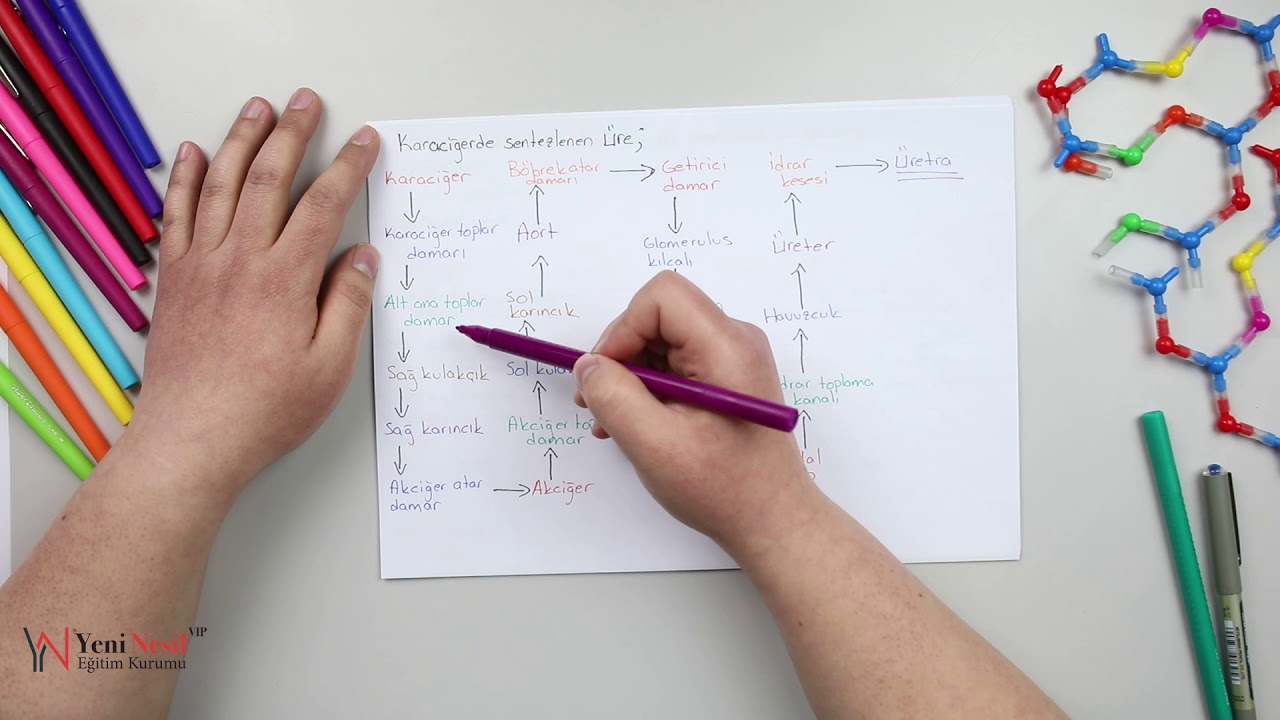 Karaciğerde sentezlenen Üre;
Karaciğer
Karaciğer toplar
damarı
Alt ana toplar
damar
Sağ kulakçık
Sağ karıncık
Akciğer atar
damar
Akciğer
Akciğer
damar
Sol
Sol
karıncık
Aort
Böbrek atar
damarı
Getirici
damar
Glomerulus
kılcalı
toplama
kanalı
Havuzcuk
Üreter
İdrar
kesesi
Üretra
Yeni Nesil VIP
Eğitim Kurumu